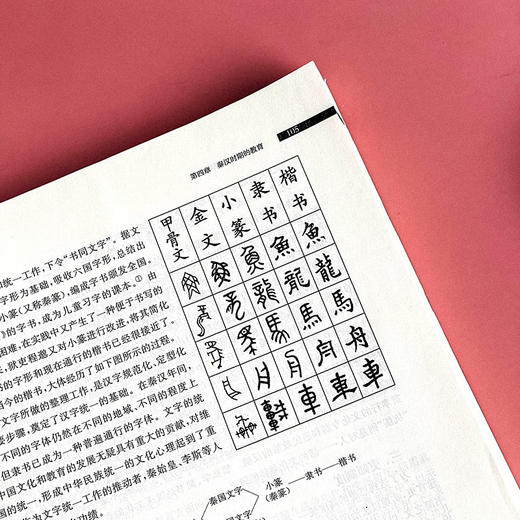 105
第四章 秦汉时期的教育
甲骨文 金文 小篆 隶书 楷书
魚 魚
龍 龍
馬 馬
舟 舟
車 車
统一工作,下令“书同文字”。据文
字形为基础,吸收六国字形,总结出
小篆(又称秦篆),编成字书颁发全国。
的字书,成为儿童习字的课本。① 由
困难,在实践中又产生了一种便于书写的
,狱吏程邈又对小篆进行改进,将其简化
书的字形和现在通行的楷书已经很接近了。
当今的楷书,大体经历了如下图所示的过程。
文字所做的整理工作,是汉字规范化、定型化
要步骤,奠定了汉字统一的基础。在秦汉年间,
不同的字体仍然在不同的地域、不同的程度上
但隶书已成为一种普遍通行的字体。文字的统
中国文化和教育的发展无疑具有重大的贡献,对维
国的统一,形成中华民族统一的文化心理起到了重
作为文字统一工作的推动者,秦始皇、李斯等人
功绩。
秦国文字
小篆
(秦篆)
隶书
楷书